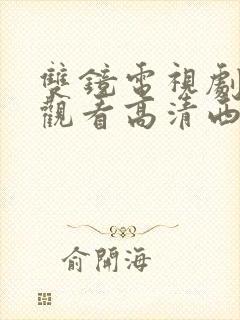 雙鏡電視劇
觀看高清西
俞開海